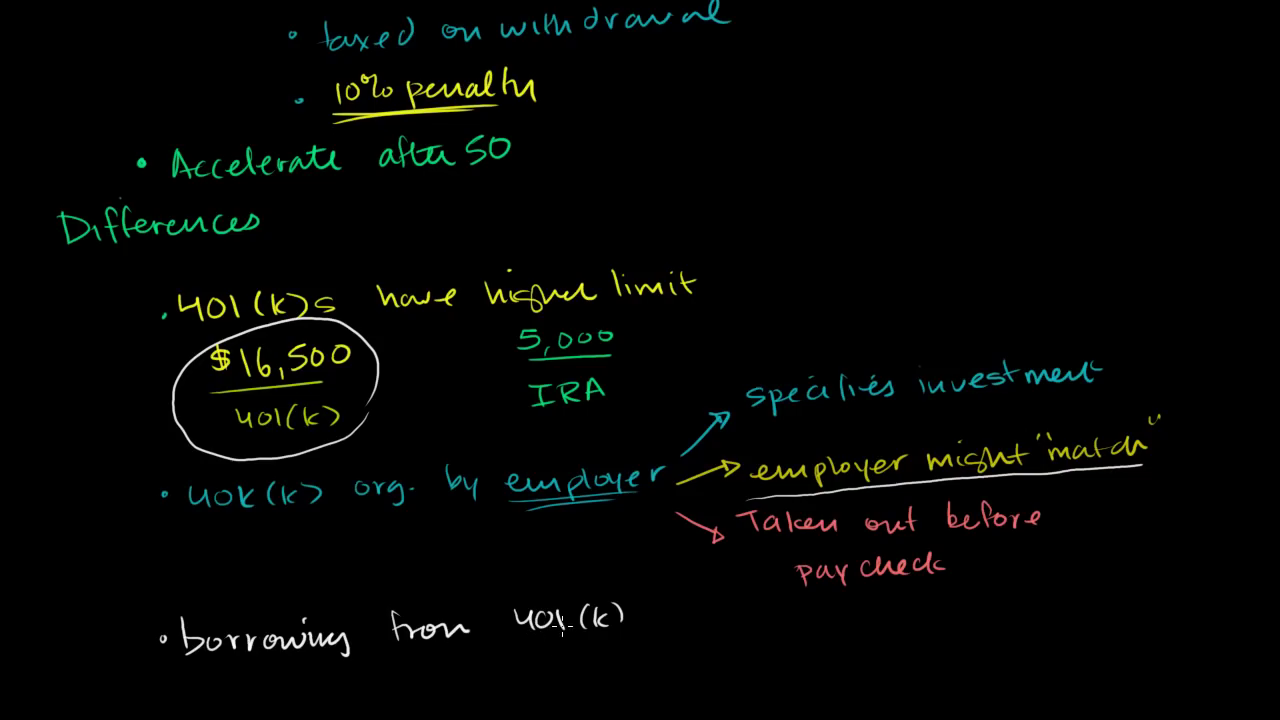 • taxed on withdrawal
• 10% penalty
• Accelerate after 50
Differences
• 401(k)s have higher limit
$16,500
401(k)
5,000
IRA
• 401(k) org. by employer
specifies investment
employer might "match"
Taken out before
paycheck
• borrowing from 401(k)